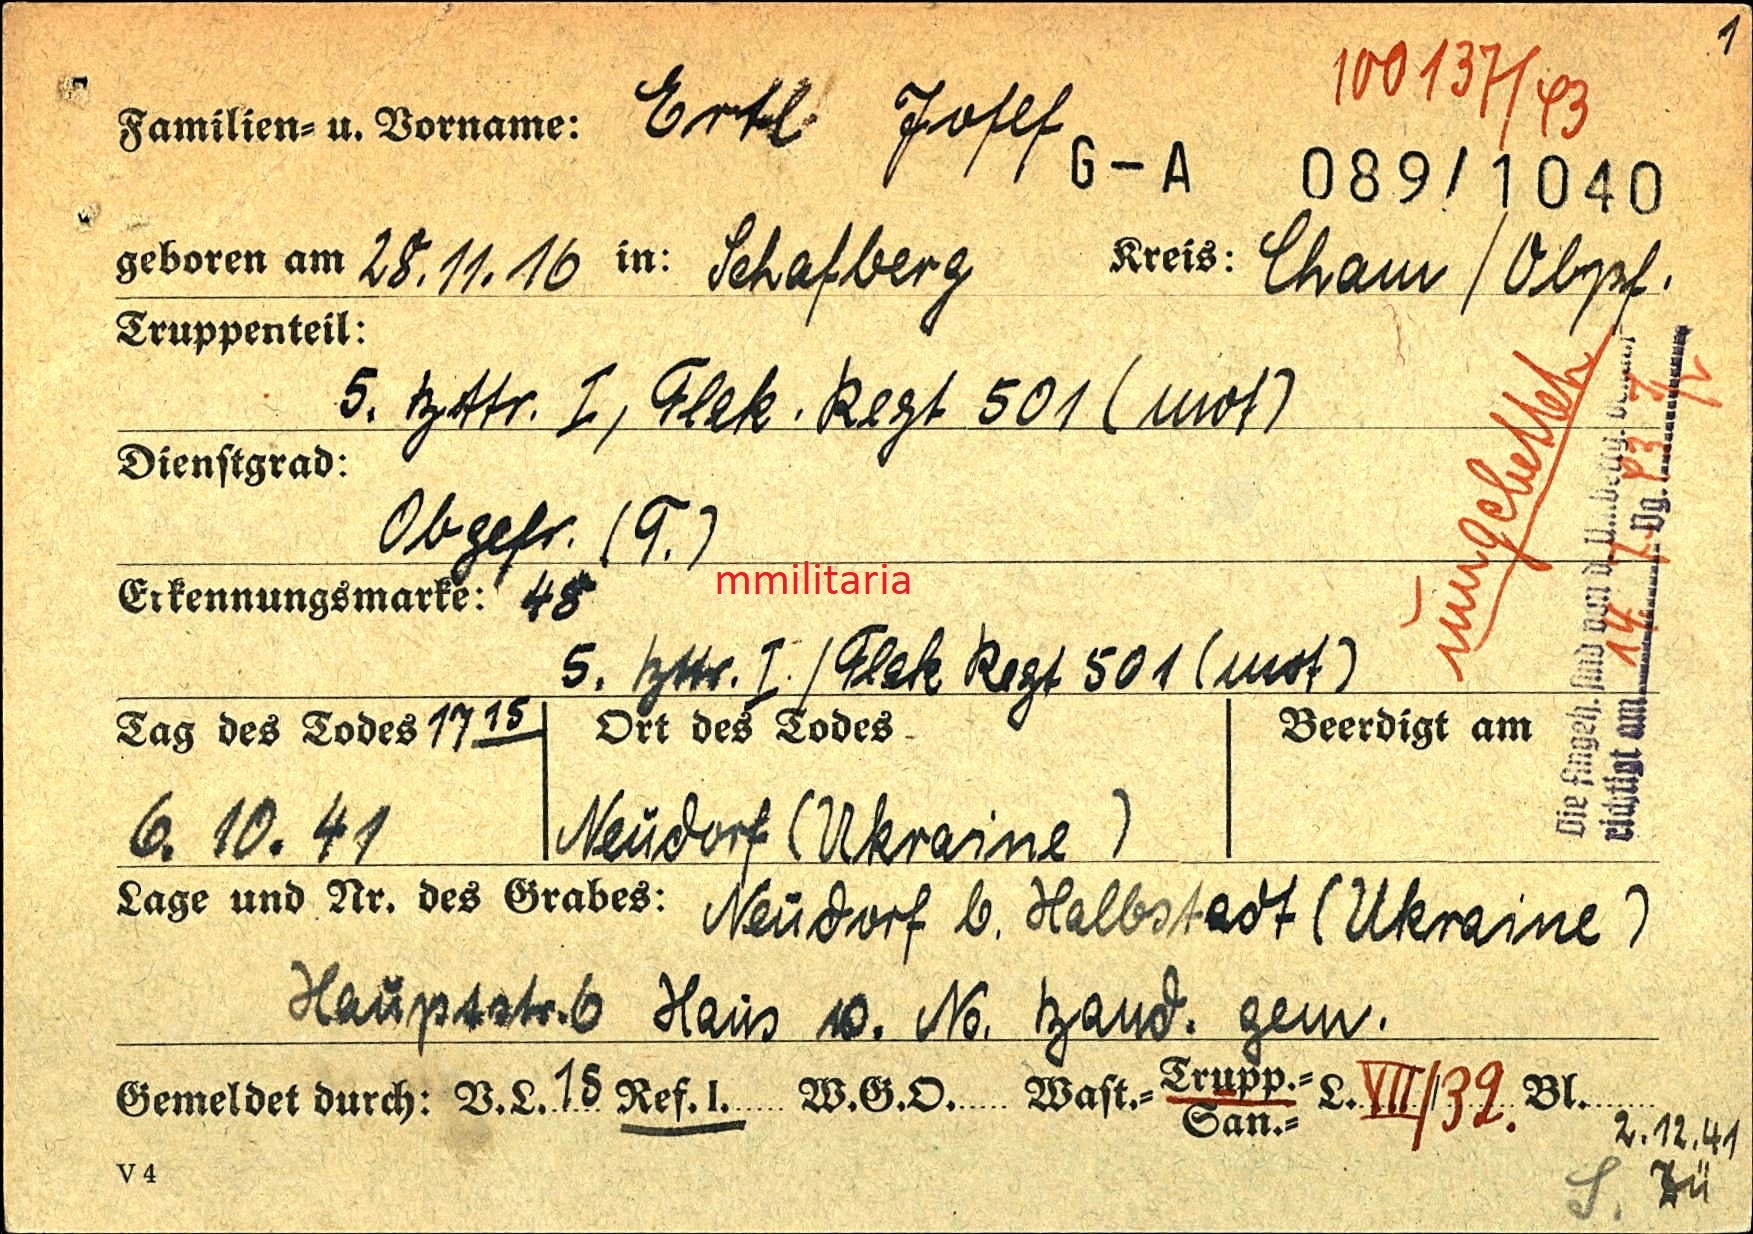 1
100137/43
Familien- u. Vorname: Ertl Josef
G-A 089/1040
geboren am 28.11.16 in: Schafberg Kreis: Cham / Obpf.
Truppenteil:
5. Bttr. I, Flak. Regt 501 (mot)
Dienstgrad:
Obgefr. (T.)
Erkennungsmarke: 48
mmilitaria
5. Bttr. I. / Flak Regt 501 (mot)
Tag des Todes 17 15 Ort des Todes Beerdigt am
6. 10. 41 Neudorf (Ukraine)
Lage und Nr. des Grabes: Neudorf b. Halbstadt (Ukraine)
Hauptstr. 6 Haus No. Band. gem.
Gemeldet durch: V.L. 15 Ref. I. W.G.O. Wast.- Trupp.- L. VII/39. Bl.
San.-
2.12.41
V 4
S. Zü
umgebettet
Die Angeh. sind von d. Umbettg. benach-
richtigt am 14. 7. 43